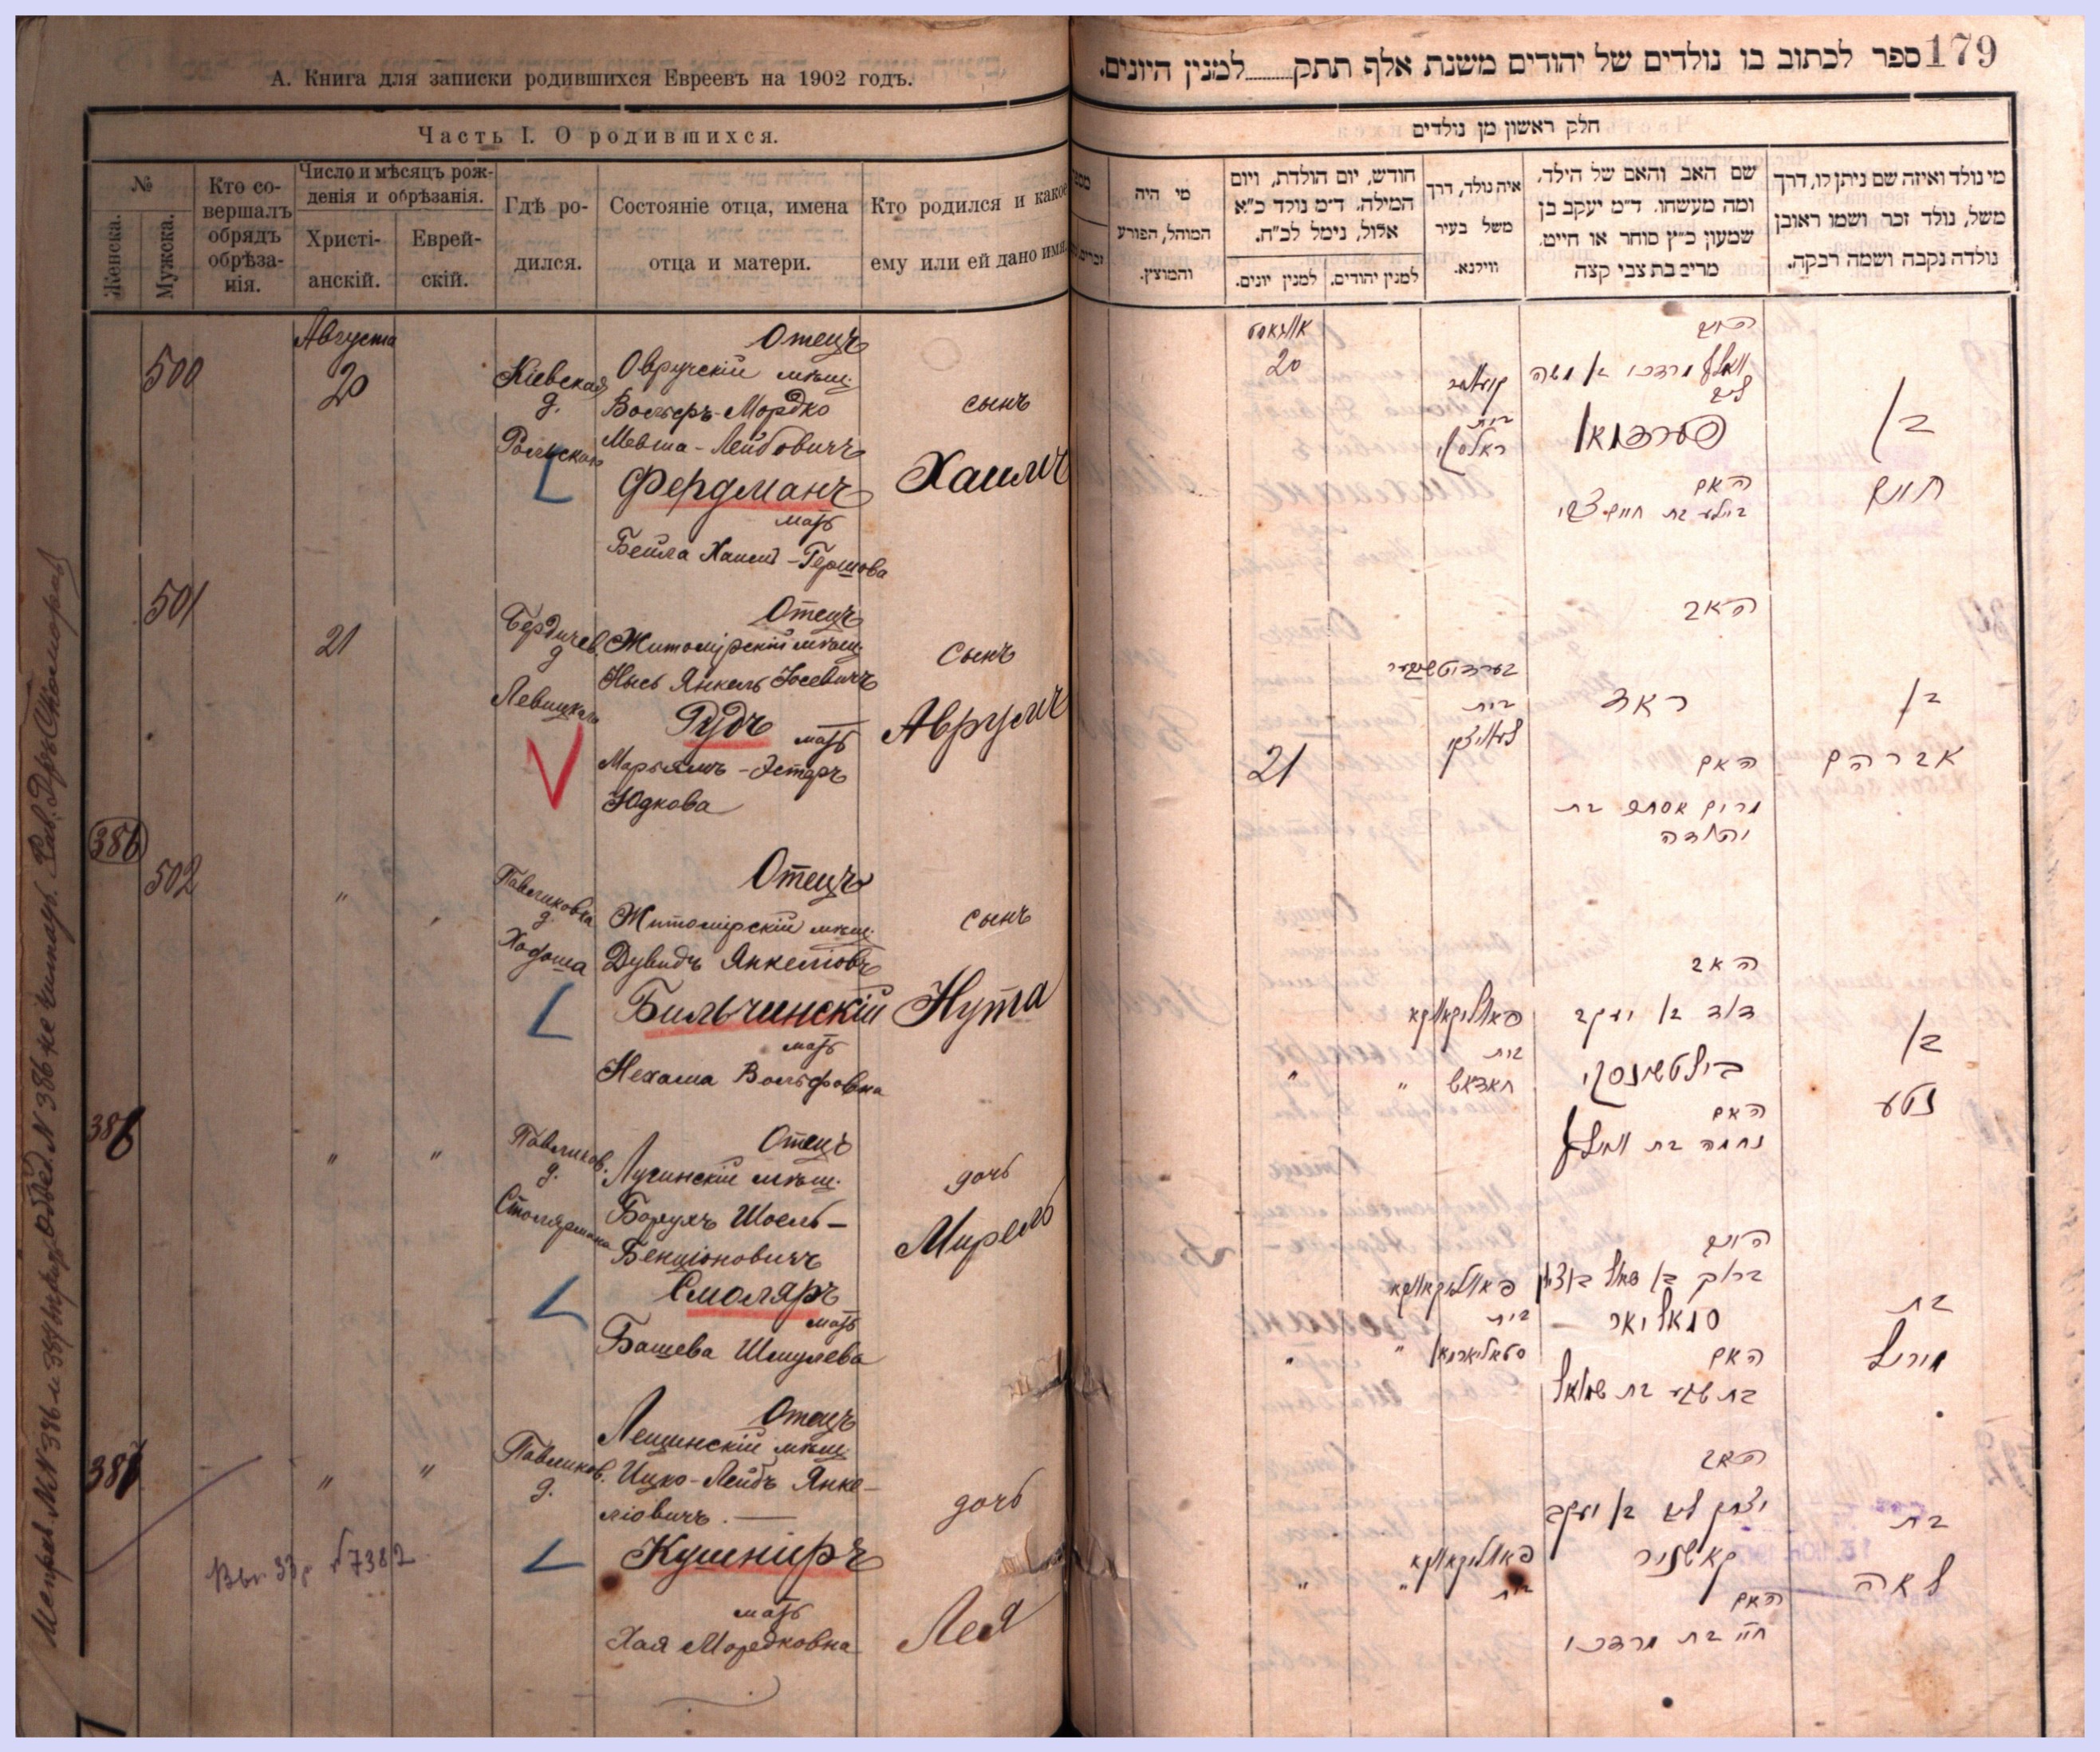 А. Книга для записки родившихся Евреевъ на 1902 годъ.
Часть I. О родившихся.
№
Женска.
Мужска.
Кто совершалъ обрядъ обрѣза-
нія.
Число и мѣсяцъ рож-
денія и обрѣзанія.
Христі-
анскій.
Еврей-
скій.
Гдѣ ро-
дился.
Состояніе отца, имена
отца и матери.
Кто родился и какое
ему или ей дано имя.
500
Августа
20
Кіевская
д.
Отецъ
Овручскій мѣщ.
Вольфъ-Мордко
Мевша-Лейбовичъ
Фердманъ
мать
Бейла Хаимъ-Гершова
сынъ
Хаимъ
501
21
Бердичев.
д
Отецъ
Житомірскій мѣщ.
Нысь Янкель Іосевичъ
Рудъ
мать
Марьямъ-Эстеръ
Юдкова
сынъ
Аврумъ
386
502
"
Павликовка
д.
Ходоша
Отецъ
Житомірскій мѣщ.
Дувидъ Янкеліовъ
Бильчинскій
мать
Нехама Вольфовна
сынъ
Нута
386
"
"
Павликов.
д.
Столярмана
Отецъ
Лугинскій мѣщ.
Борухъ Шоель-
Бенціоновичъ
Смоляръ
мать
Башева Шмулева
дочь
Мирель
387
"
"
Павликов.
д.
Отецъ
Лещинскій мѣщ.
Ицко-Лейбъ Янке-
ліовичъ.
Кушниръ
мать
Хая Мордковна
дочь
Лея
№7382
179
ספר לכתוב בו נולדים של יהודים משנת אלף תתק למנין היונים.
חלק ראשון מן נולדים
מי נולד ואיזה שם ניתן לו, דרך
משל, נולד זכר ושמו ראובן
נולדה נקבה ושמה רבקה.
שם האב והאם של הילד,
ומה מעשהו. ד״מ יעקב בן
שמעון כ״ץ סוחר או חייט,
מרים בת צבי קצה
איה נולד, דרך
משל בעיר
ווילנא.
חודש, יום הולדת, ויום
המילה. ד״מ נולד כ״א
אלול, נימל לכ״ח.
למנין יהודים.
למנין יונים.
מי היה
המוהל, הפורע
והמוצץ.
אויגאוסט
20
מרדכי בן משה
פערדמאן
האם
ביילע בת חיים צבי
בן
חיים
21
האב
בית
ראד
האם
מרים אסתר בת
יהודה
בן
אברהם
"
פאוליקאווקא
בית
"
האב
דוד בן יעקב
בילטשינסקי
האם
נחמה בת וואלף
בן
נטע
"
פאוליקאווקא
בית
"
האב
סמאליאר
האם
בת שבע בת שמואל
בת
מירל
"
פאוליקאווקא
בית
"
האב
יצחק ליב בן יעקב
קאשניר
האם
חי׳ בת מרדכי
בת
לאה